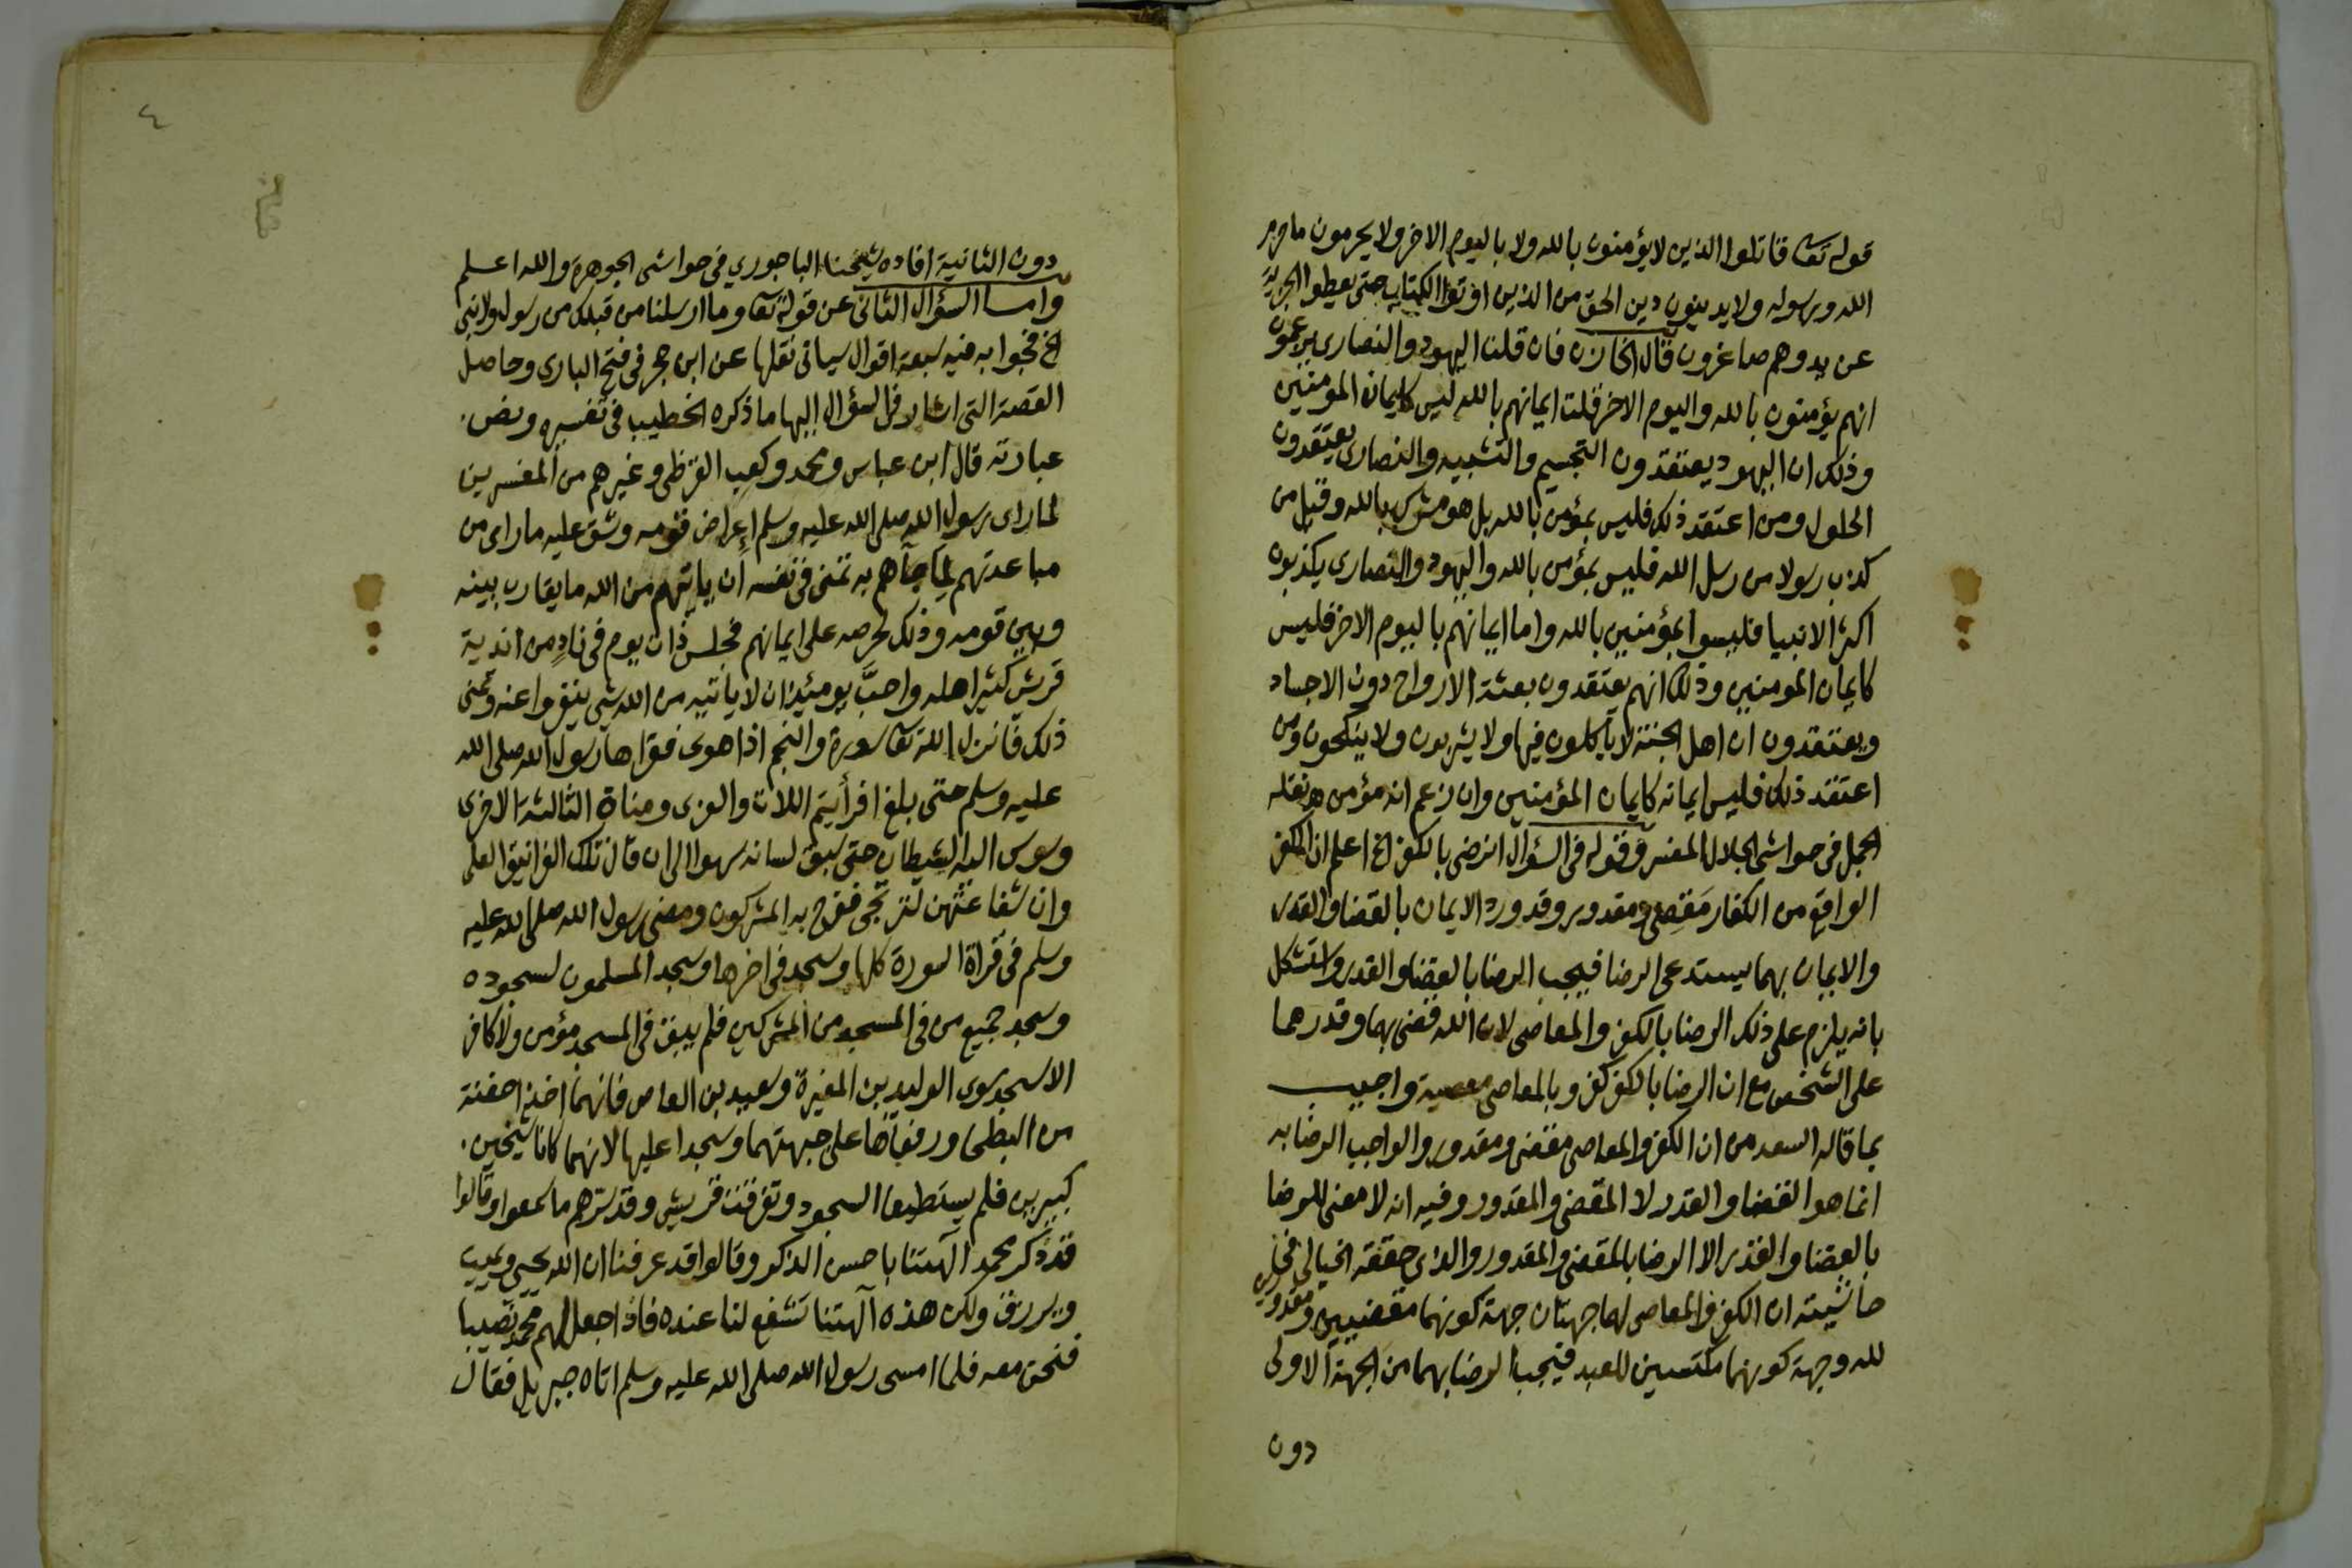 قوله تعا قاتلوا الذين لا يؤمنون بالله ولا باليوم الاخر ولا يحرمون ما حرم
الله ورسوله ولا يدينون دين الحق من الذين اوتوا الكتاب حتى يعطوا الجزية
عن يد وهم صاغرون قال الخازن فان قلنا اليهود والنصارى يزعمون
انهم يؤمنون بالله واليوم الاخر قلت ايمانهم بالله ليس كايمان المومنين
وذلك ان اليهود يعتقدون التجسيم والتشبيه والنصارى يعتقدون
الحلول ومن اعتقد ذلك فليس بمؤمن بالله بل هو مشرك بالله وقيل من
كذب رسولا من رسل الله فليس بمؤمن بالله واليهود والنصارى يكذبون
اكثر الانبيا فليسوا بمؤمنين بالله واما ايمانهم باليوم الاخر فليس
كايمان المومنين وذلك انهم يعتقدون بعثة الارواح دون الاجساد
ويعتقدون ان اهل الجنة لا ياكلون فيها ولا يشربون ولا ينكحون ومن
اعتقد ذلك فليس ايمانه كايمان المؤمنين وان زعم انه مؤمن هـ نقله
الجمل فى حواشى الجلال المفسر وقوله فى السؤال انرضى بالكفر الخ اعلم ان الكفر
الواقع من الكفار مقضى ومقدور وقد ورد الايمان بالقضا والقدر
والايمان بهما يستدعى الرضا فيجب الرضا بالقضا والقدر واستشكل
بانه يلزم على ذلك الرضا بالكفر والمعاصى لان الله قضى بهما وقدرهما
على الشخص مع ان الرضا بالكفر كفر وبالمعاصى معصية واجيب
بما قاله السعد من ان الكفر والمعاصى مقضى ومقدور والواجب الرضا به
انما هو القضا والقدر لا المقضى والمقدور وفيه انه لا معنى للرضا
بالقضا والقدر الا الرضا بالمقضى والمقدور والذى حققه الخيالى فى
حاشيته ان الكفر والمعاصى لهما جهتان جهة كونهما مقضيين ومقدورين
لله وجهة كونهما مكتسبين للعبد فيجب الرضا بهما من الجهة الاولى
دون
٤
دون الثانية افاده شيخنا الباجوري فى حواشى الجوهرة والله اعلم
واما السؤال الثانى عن قوله تعا وما ارسلنا من قبلك من رسول ولا نبى
الخ فجوابه فيه سبعة اقوال سياتى نقلها عن ابن حجر فى فتح البارى وحاصل
القصة التى اشار فى السؤال اليها ما ذكره الخطيب فى تفسيره ونص
عبارته قال ابن عباس ومحمد وكعب القرظى وغيرهم من المفسرين
لما راى رسول الله صلى الله عليه وسلم إعراض قومه وشق عليه ما راى من
مباعدتهم لما جآهم به تمنى فى نفسه ان ياتيهم من الله ما يقارب بينه
وبين قومه وذلك لحرصه على ايمانهم فجلس ذات يوم فى نادٍ من اندية
قريش كثير اهله واحبَّ يومئيذ ان لا ياتيه من الله شى ينفروا عنه وتمنى
ذلك فانزل الله تعا سورة والنجم اذا هوى فقراها رسول الله صلى الله
عليه وسلم حتى بلغ افرأيتم اللات والعزى ومناة الثالثة الاخرى
وسوس اليه الشيطان حتى سبق لسانه سهوا الى ان قال تلك الغرانيق العلى
وان شفاعتهن لترتجى ففرح به المشركون ومضى رسول الله صلى الله عليه
وسلم فى قراة السورة كلها وسجد فى اخرها وسجد المسلمون لسجوده
وسجد جميع من فى المسجد من المشركين فلم يبق فى المسجد مؤمن ولا كافر
الا سجد سوى الوليد بن المغيرة وسعيد بن العاص فانهما اخذا حفنة
من البطحا ورفعاها على جبهتهما وسجدا عليها لانهما كانا شيخين
كبيرين فلم يستطيعا السجود وتفرقت قريش وقد سرهم ما سمعوا وقالوا
قد ذكر محمد آلهتنا باحسن الذكر وقالوا قد عرفنا ان الله يحيى ويميت
ويرزق ولكن هذه آلهتنا تشفع لنا عنده فاذا جعل لهم محمد نصيبا
فنحن معه فلما امسى رسول الله صلى الله عليه وسلم اتاه جبريل فقال